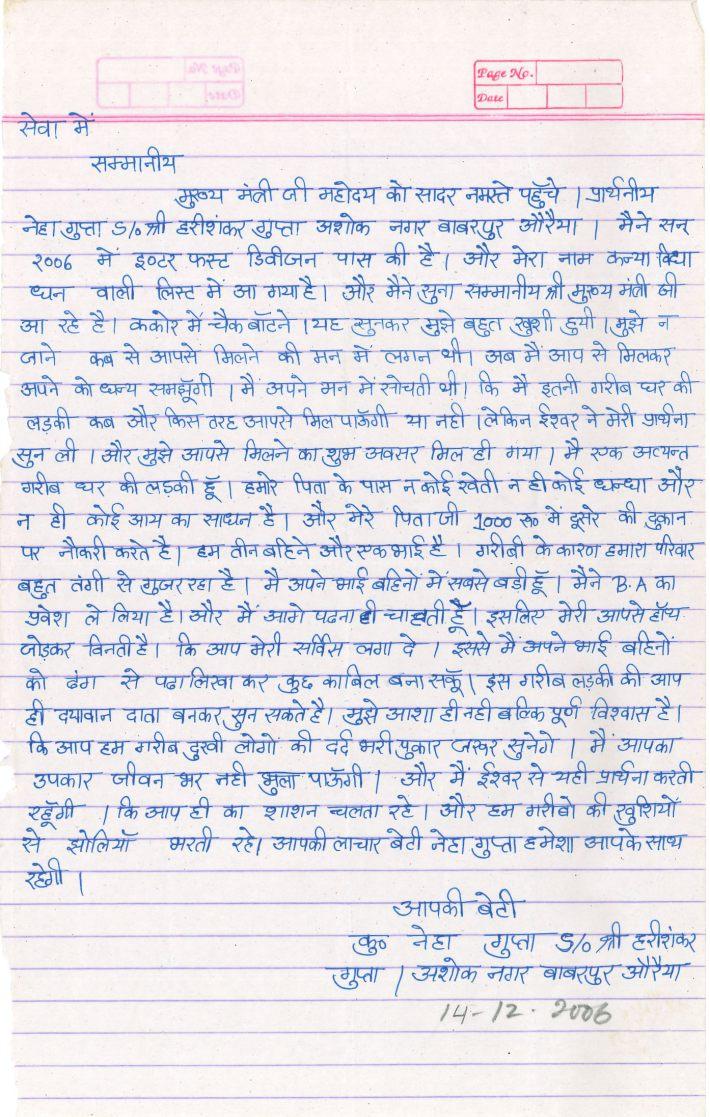 Page No.
Date
सेवा में
सम्मानीय
मुख्य मंत्री जी महोदय को सादर नमस्ते पहुँचे । प्रार्थनीय
नेहा गुप्ता S/० श्री हरीशंकर गुप्ता अशोक नगर बाबरपुर औरैया । मैने सन्
२००6 में इ०टर फस्ट डिवीजन पास की है । और मेरा नाम कन्या विद्या
धन वाली लिस्ट में आ गया है । और मैने सुना सम्मानीय श्री मुख्य मंत्री जी
आ रहे है । ककोर में चैक बॉटने । यह सुनकर मुझे बहुत खुशी हुयी । मुझे न
जाने कब से आपसे मिलने की मन में लगन थी । अब मैं आप से मिलकर
अपने को धन्य समझूँगी । मैं अपने मन में सोचती थी । कि मै इतनी गरीब घर की
लड़की कब और किस तरह आपसे मिल पाऊँगी या नही । लेकिन ईश्वर ने मेरी प्रार्थना
सुन ली । और मुझे आपसे मिलने का शुभ अवसर मिल ही गया । मै एक अत्यन्त
गरीब घर की लड़की हूँ । हमारे पिता के पास न कोई खेती न ही कोई धन्धा और
न ही कोई आय का साधन है । और मेरे पिता जी 1000 रू० में दूसरे की दुकान
पर नौकरी करते है । हम तीन बहिने और एक भाई है । गरीबी के कारण हमारा परिवार
बहुत तंगी से गुजर रहा है । मै अपने भाई बहिनों में सबसे बड़ी हूँ । मैने B.A का
प्रवेश ले लिया है । और मैं आगे पढना ही चाहती हूँ । इसलिए मेरी आपसे हॉथ
जोड़कर विनती है । कि आप मेरी सर्विस लगा दे । इससे मैं अपने भाई बहिनों
को ढंग से पढा लिखा कर कुछ काबिल बना सकूँ । इस गरीब लड़की की आप
ही दयावान दाता बनकर सुन सकते है । मुझे आशा ही नही बल्कि पूर्ण विश्वास है ।
कि आप हम गरीब दुखी लोगों की दर्द भरी पुकार जरूर सुनेगे । मैं आपका
उपकार जीवन भर नही भुला पाऊँगी । और मैं ईश्वर से यही प्रार्थना करती
रहूँगी । कि आप ही का शाशन चलता रहे । और हम गरीबो की खुशियों
से झोलियॉ भरती रहे । आपकी लाचार बेटी नेहा गुप्ता हमेशा आपके साथ
रहेगी ।
आपकी बेटी
कु० नेहा गुप्ता S/० श्री हरीशंकर
गुप्ता । अशोक नगर बाबरपुर औरैया
14-12.2006